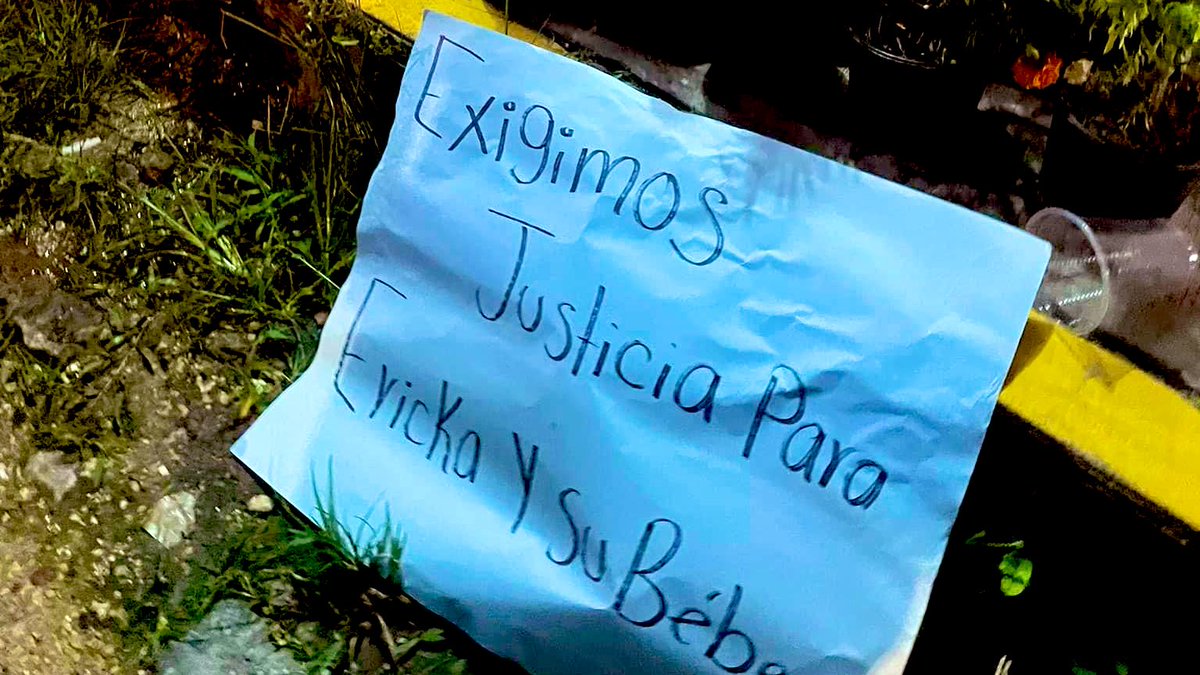 Exigimos
Justicia Para
Ericka y su Bébe